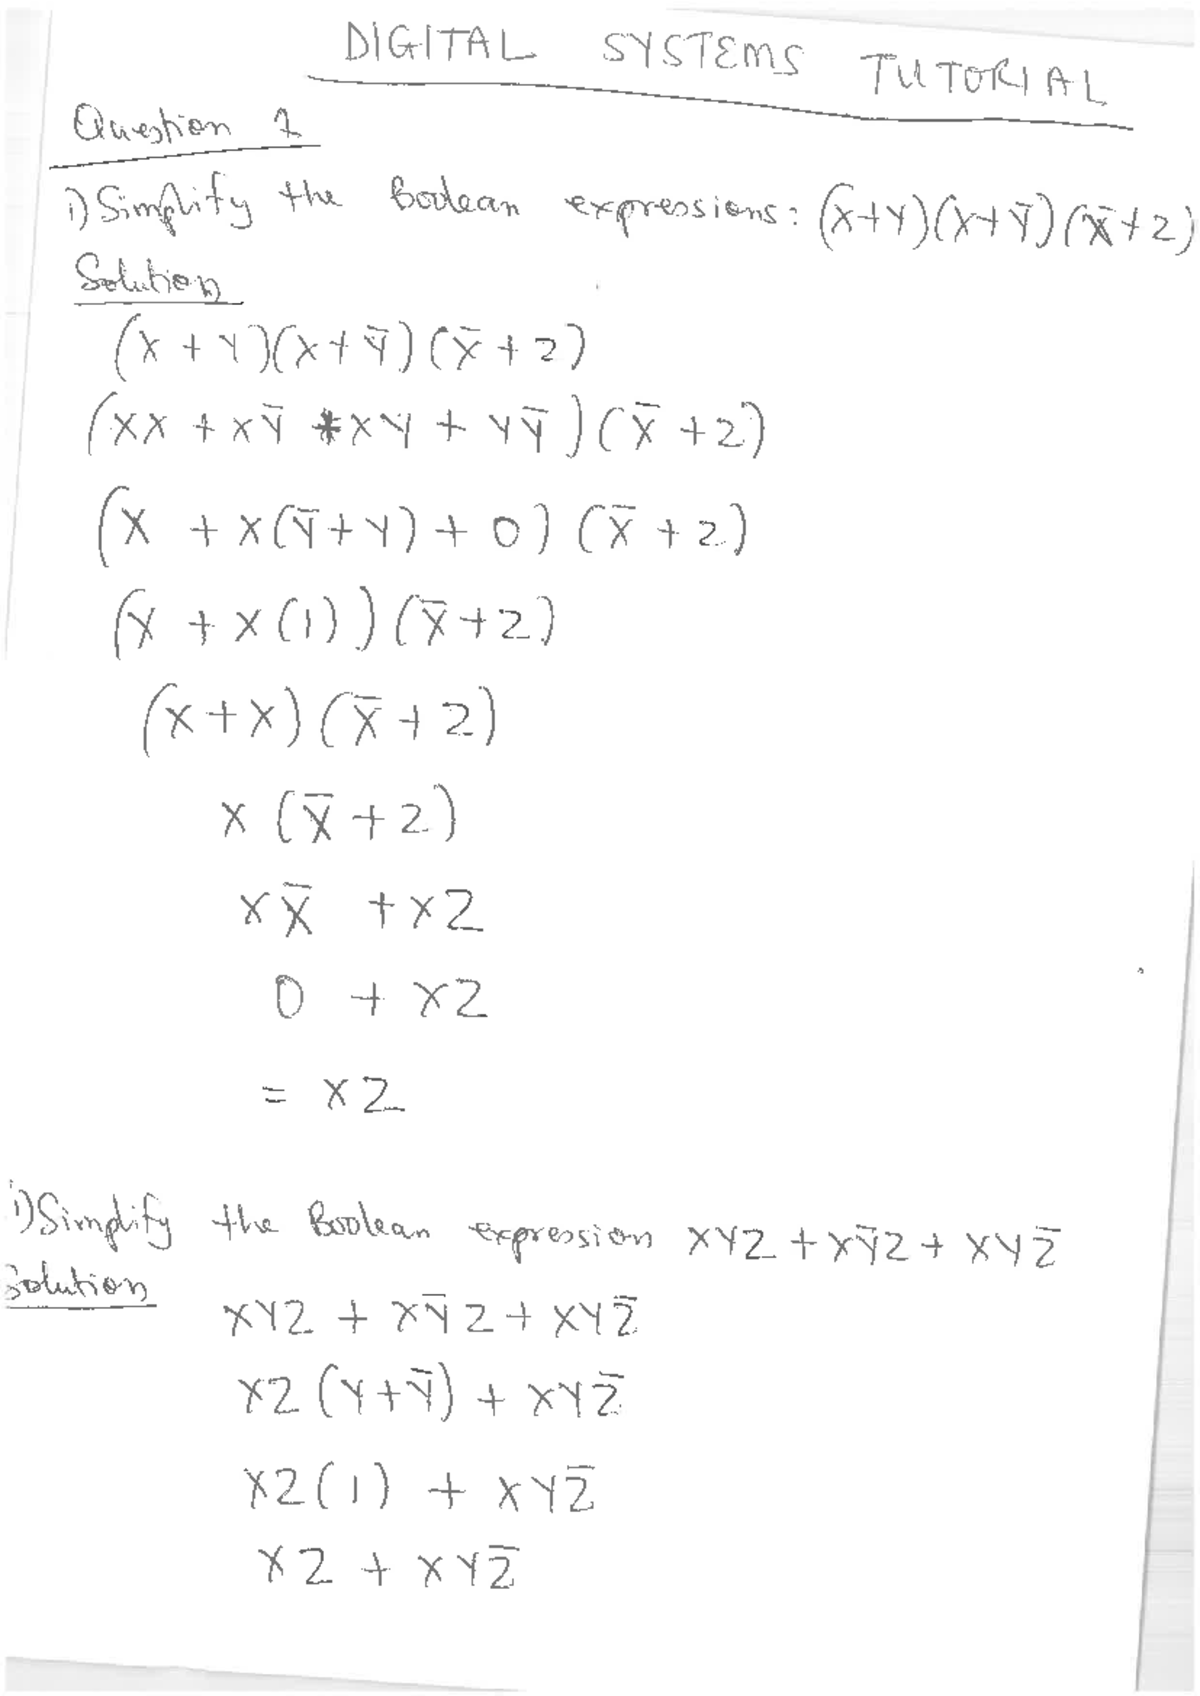 DIGITAL SYSTEMS TUTORIAL
Question 1
i) Simplify the Boolean expressions: (X+Y)(X+Ȳ)(X̄+Z)
Solution
(X + Y)(X + Ȳ)(X̄ + Z)
(XX + XȲ + XY + YȲ)(X̄ + Z)
(X + X(Ȳ + Y) + 0)(X̄ + Z)
(X + X(1))(X̄ + Z)
(X + X)(X̄ + Z)
X(X̄ + Z)
XX̄ + XZ
0 + XZ
= XZ
i) Simplify the Boolean expression XYZ + XȲZ + XYZ̄
Solution
XYZ + XȲZ + XYZ̄
XZ(Y + Ȳ) + XYZ̄
XZ(1) + XYZ̄
XZ + XYZ̄